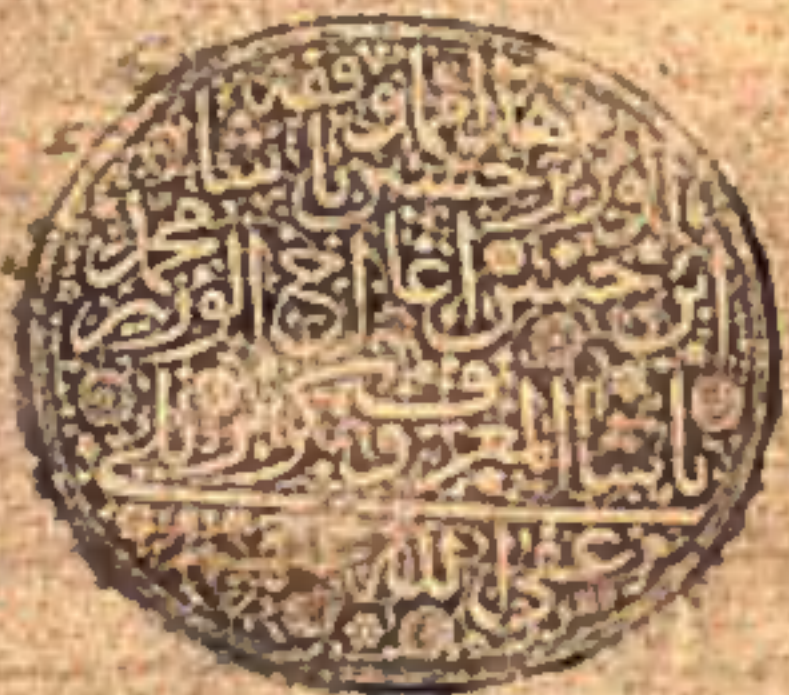 هذا ما وقفه
الوزير حسين باشا
ابن حسن اغا اخ الوزير محمد
باشا المعروف
عفى الله